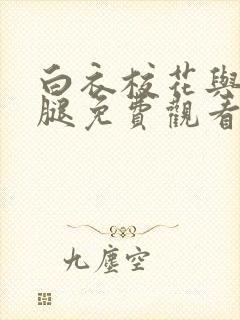 白衣校花與
腿免費觀看
九塵空